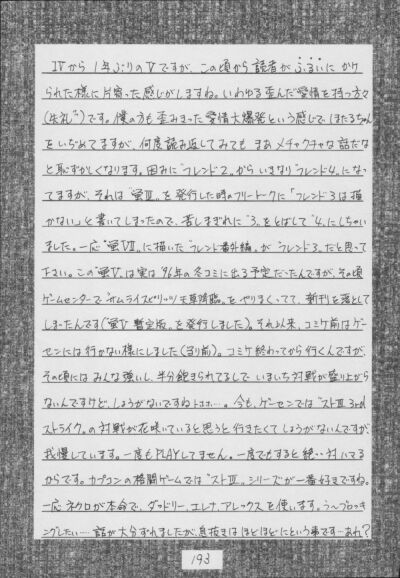 IVから1年ぶりのVですが、この頃から読者がふるいにかけ
られた様に片寄った感じがしますね。いわゆる歪んだ愛情を持つ方々
(失礼)です。僕の方も歪みまった愛情大爆発という感じで、ほたるちゃん
をいぢめてますが、何度読み返してみても まあ メチャクチャな話だな
と恥ずかしくなります。因みに"フレンド2"からいきなり"フレンド4"になっ
てますが、それは"蛍III"を発行した時のフリートークに「フレンド3は描
かない」と書いてしまったので、苦しまぎれに"3"をとばして"4"にしちゃい
ました。一応"蛍VII"に描いた"フレンド番外編"が"フレンド3"だと思って
下さい。この"蛍V"は実は'96年の冬コミに出る予定だったんですが、その頃
ゲームセンターで"サムライスピリッツ天草降臨"をやりまくってて、新刊を落として
しまったんです("蛍V暫定版"を発行しました)。それ以来、コミケ前はゲー
センには行かない様にしました(当り前)。コミケ終わってから行くんですが、
その頃にはみんな強いし、半分飽きられてるしで いまいち対戦が盛り上がら
ないんですけど、しょうがないですねトホホ…。今も、ゲーセンでは"ストIII 3rd
ストライク"の対戦が花咲いていると思うと行きたくてしょうがないんですが、
我慢しています。一度もPLAYしてません。一度でもすると絶対ハマる
からです。カプコンの格闘ゲームでは"ストIII"シリーズが一番好きですね。
一応ネクロが本命で、ダッドリー、エレナ、アレックスを使います。う〜ブロッキ
ングしたい…話が大分ずれましたが、息抜きはほどほどにという事です…あれ?
193